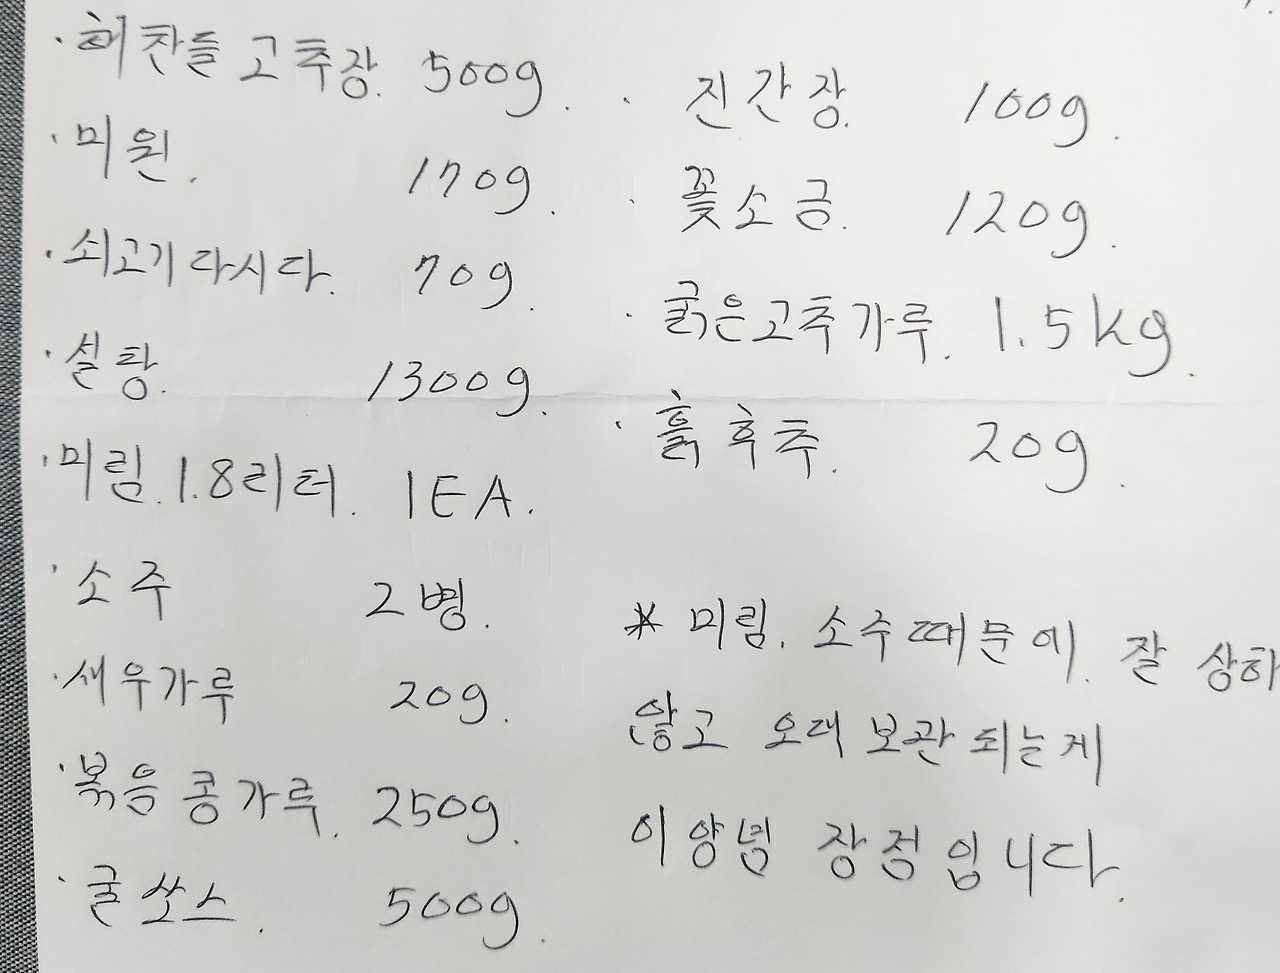 · 해찬들 고추장. 500g.
· 미원. 170g.
· 쇠고기 다시다. 70g.
· 설탕. 1300g.
· 미림. 1.8리터. 1EA.
· 소주 2병.
· 새우가루 20g.
· 볶음 콩가루. 250g.
· 굴쏘스. 500g.
· 진간장. 100g.
· 꽃소금. 120g.
· 굵은고추가루. 1.5kg.
· 흙후추. 20g.
* 미림. 소주때문에. 잘 상하
않고 오래 보관 되는게
이양념 장점입니다.